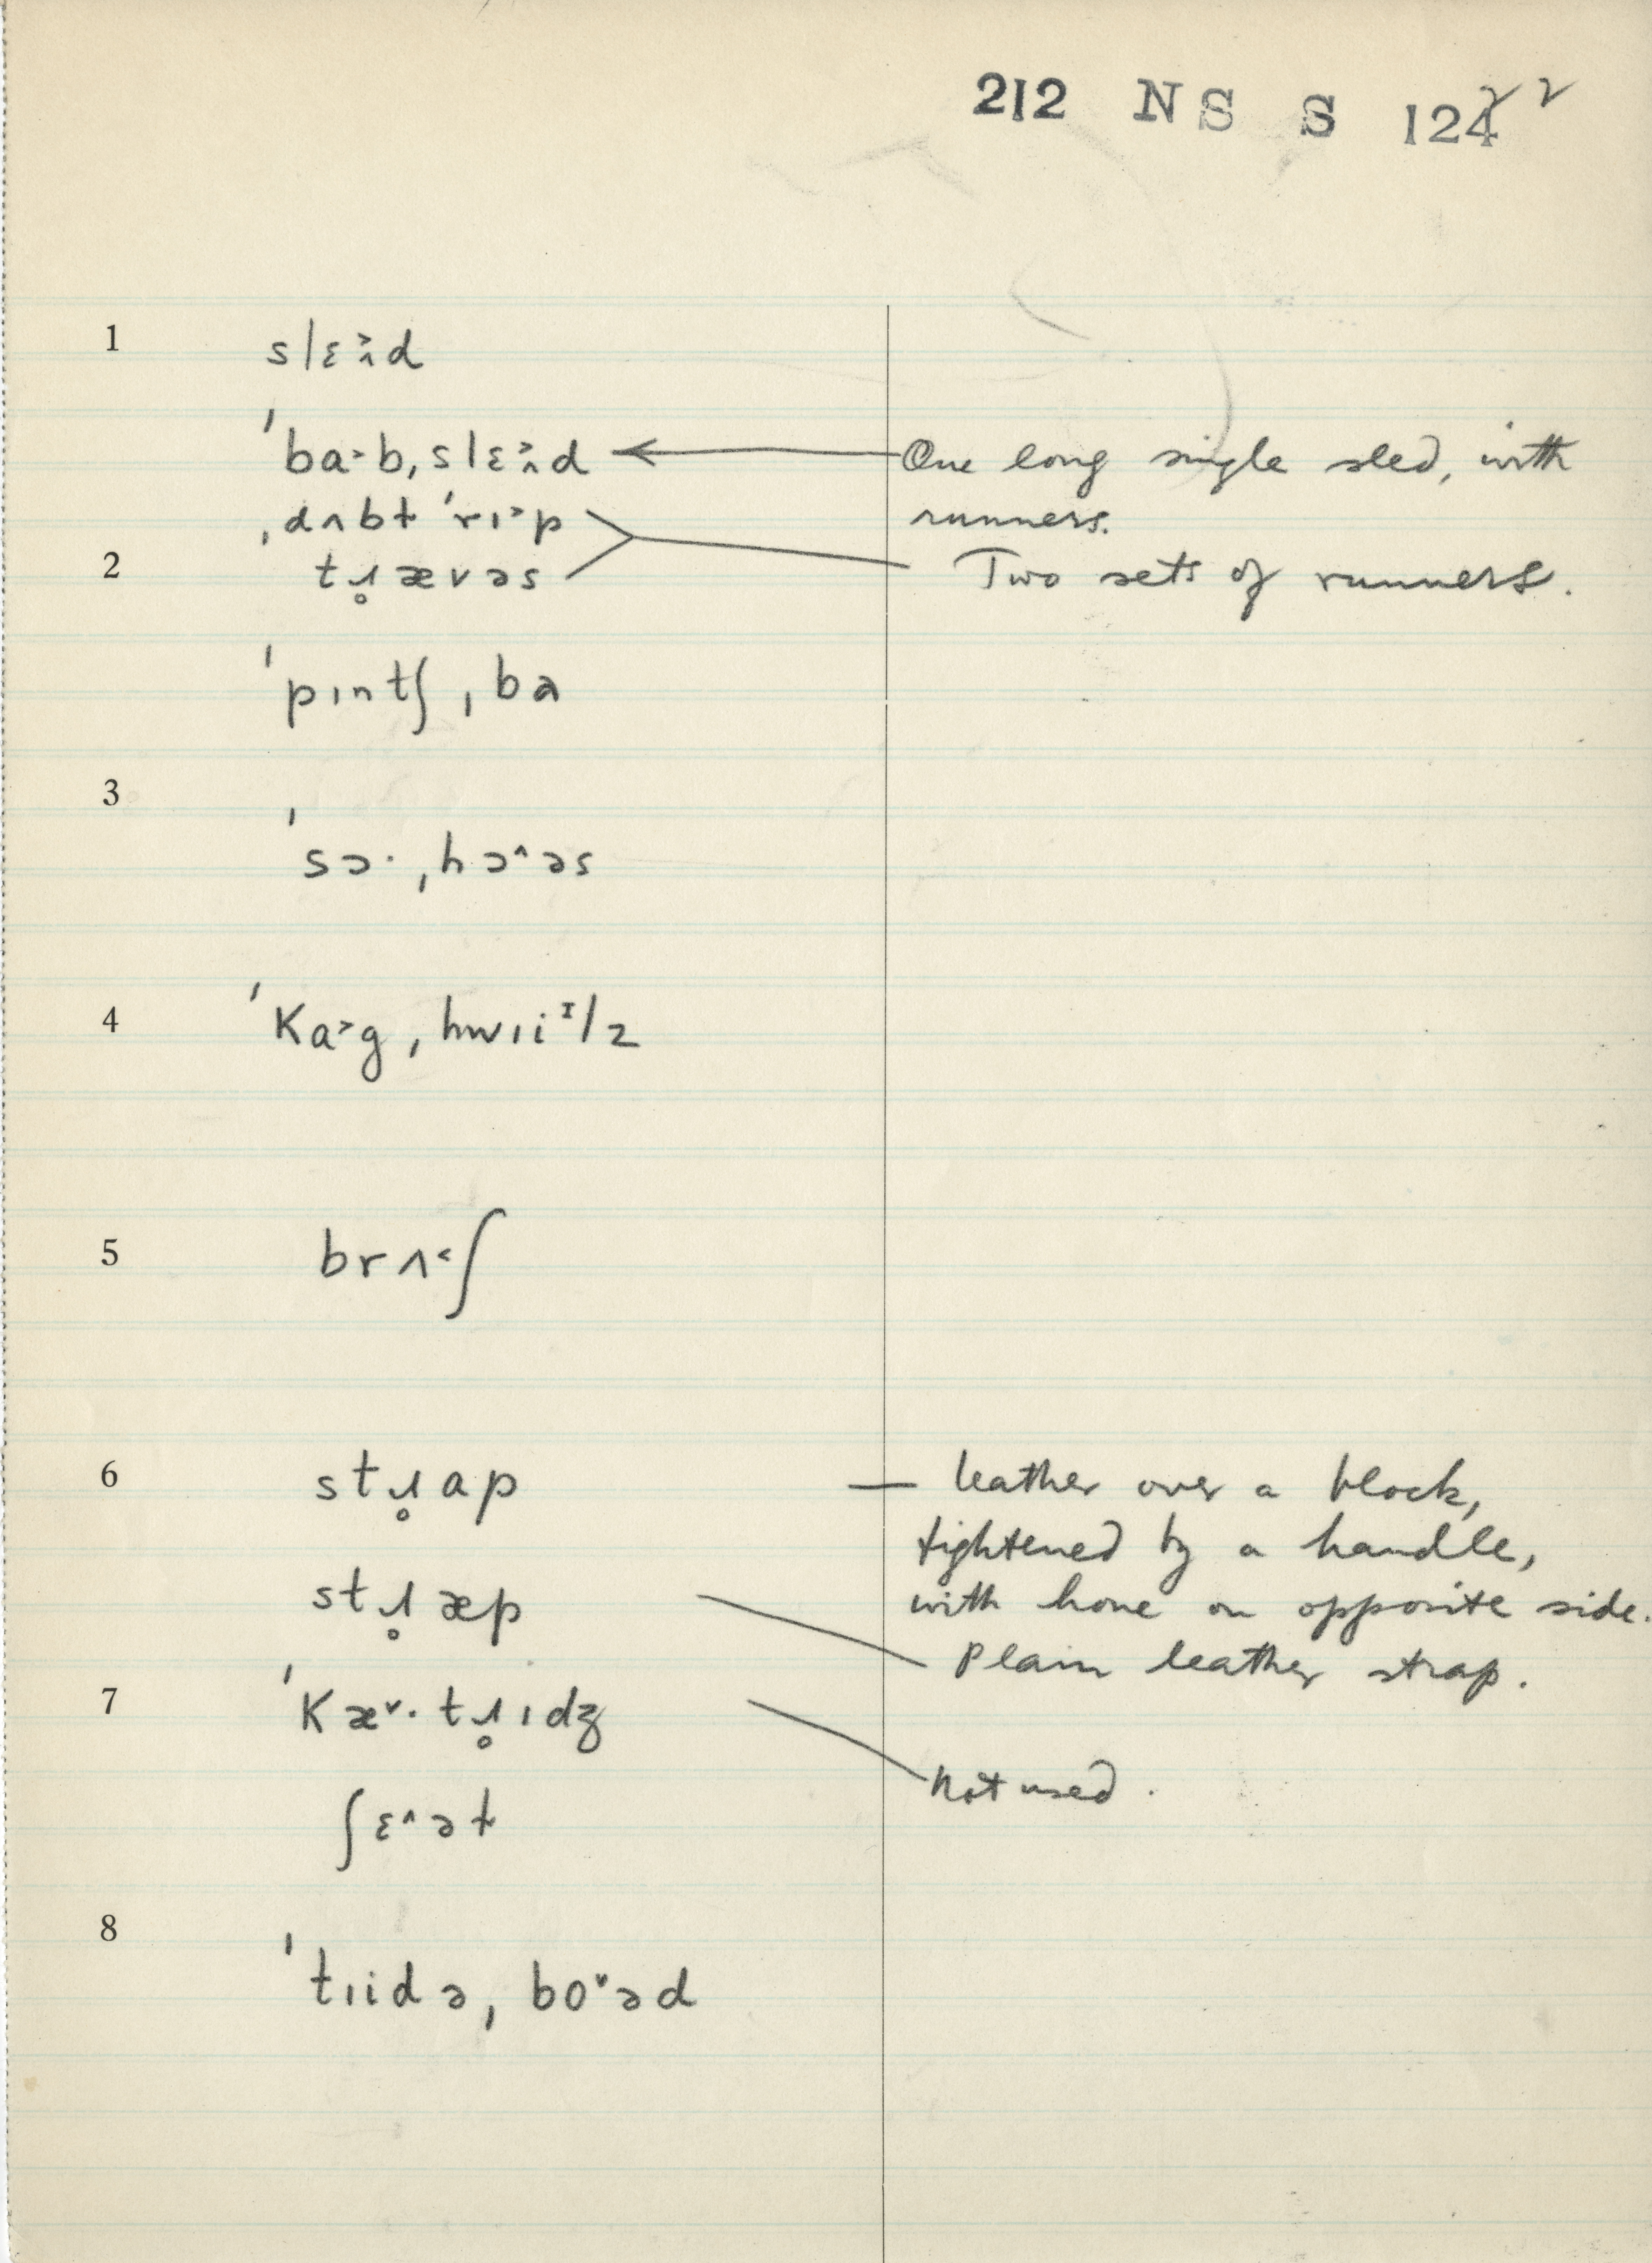 212 NS S 124 2 2
1 slɛ˃˄d
ˈba˃b, slɛ˃˄d One long single sled, with
ˌdʌbɫ ˈrɪ˃p runners.
2 tɹ̥ævəs Two sets of runners.
ˈpɪntʃ ˌba
3
ˈsɔ· ˌhɔ˄əs
4 ˈKa˃g ˌhwɪiᶦlz
5 brʌ˂ʃ
6 stɹ̥ap — leather over a block,
tightened by a handle,
stɹ̥æp with hone on opposite side.
Plain leather strap.
7 ˈKæ˅· tɹ̥ɪdʒ
Not used.
ʃɛ˄əɫ
8
ˈtɪidə ˌbo˅əd